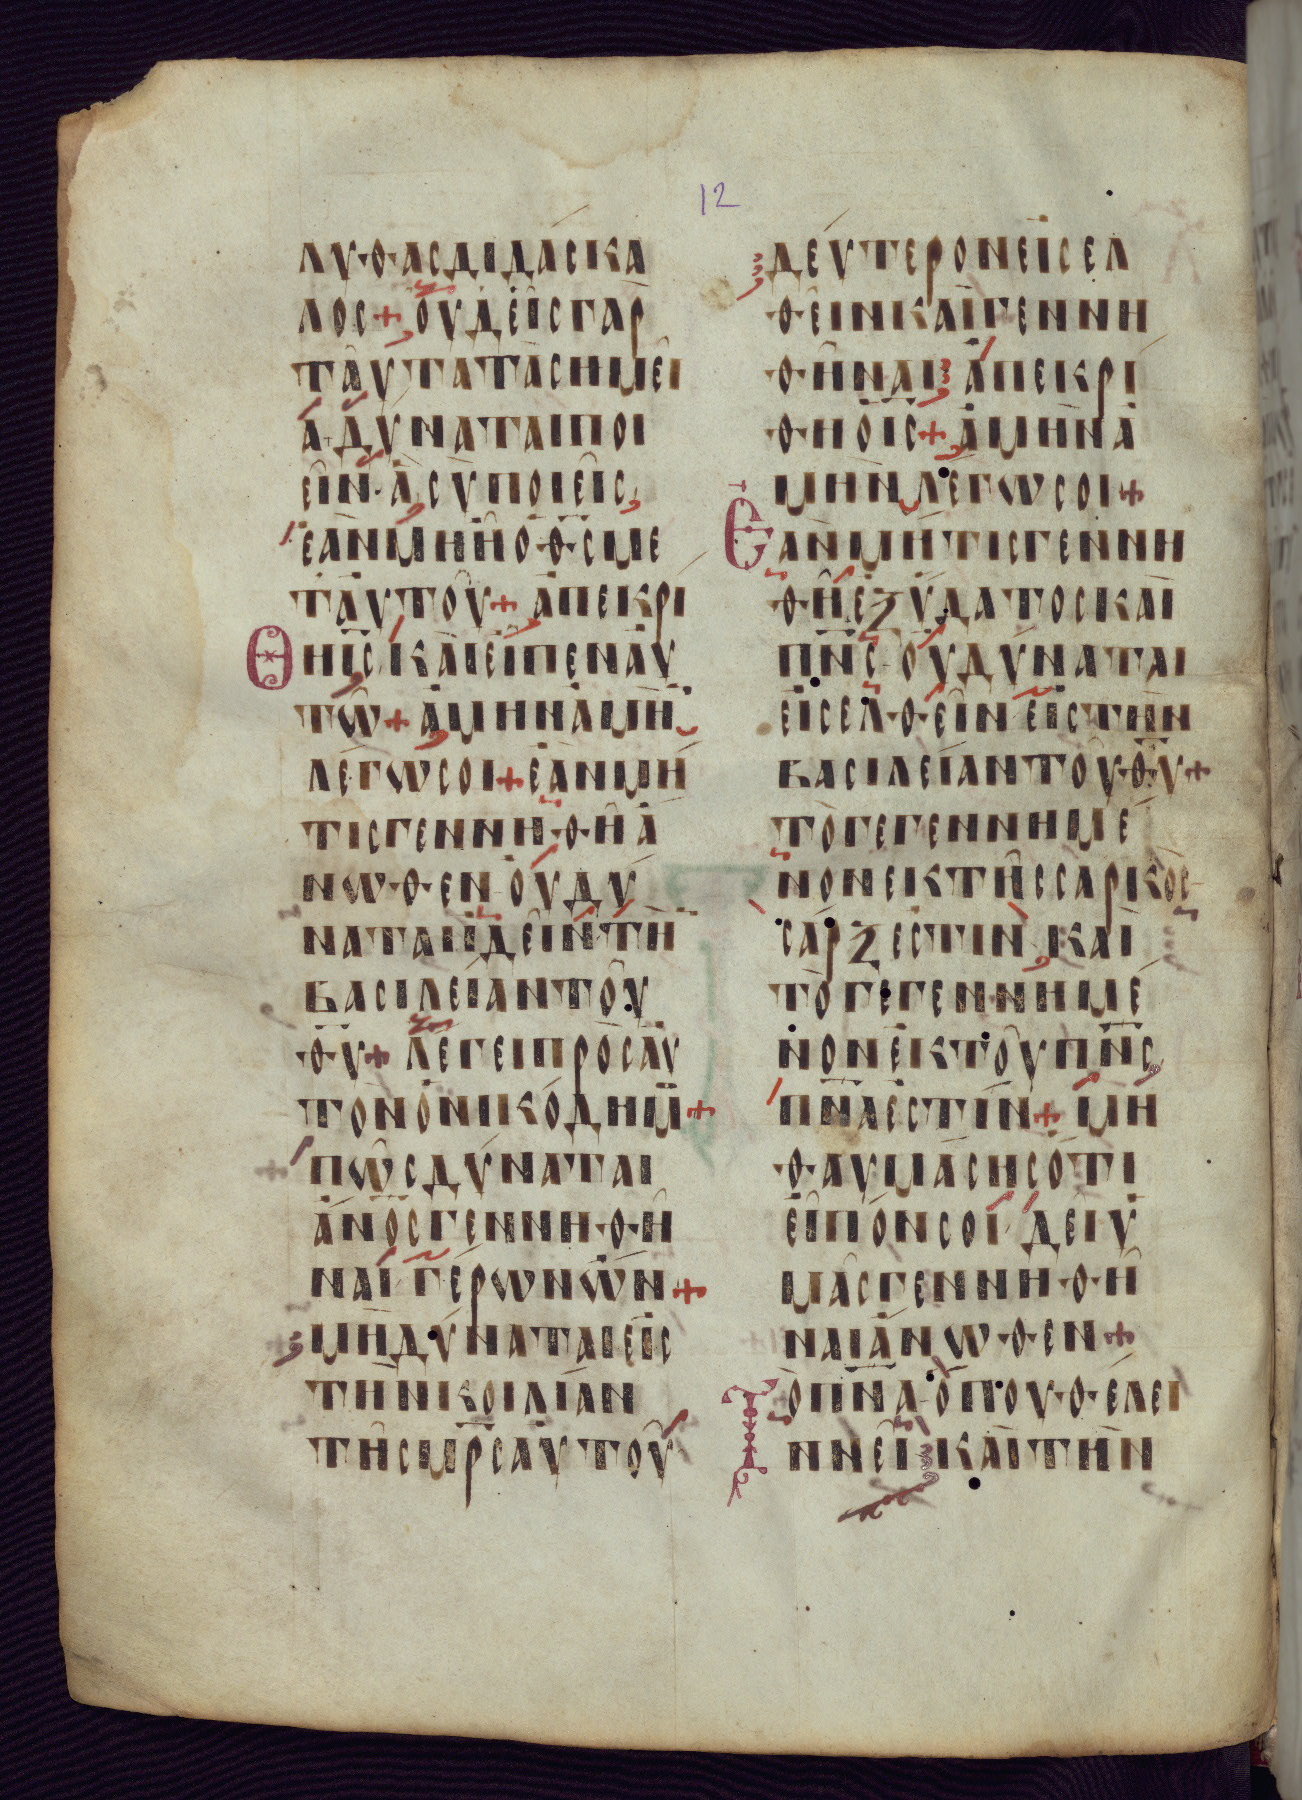 12
ΛΥΘΑΣ ΔΙΔΑΣΚΑ
ΛΟΣ + ΟΥΔΕΙΣ ΓΑΡ
ΤΑΥΤΑ ΤΑ ΣΗΜΕΙ
Α ΔΥΝΑΤΑΙ ΠΟΙ
ΕΙΝ Α ΣΥ ΠΟΙΕΙΣ,
ΕΑΝ ΜΗ Ο ΘΣ ΜΕ
Τ ΑΥΤΟΥ + ΑΠΕΚΡΙ
ΘΗ ΙΣ ΚΑΙ ΕΙΠΕΝ ΑΥ
ΤΩ + ΑΜΗΝ ΑΜΗ
ΛΕΓΩ ΣΟΙ + ΕΑΝ ΜΗ
ΤΙΣ ΓΕΝΝΗΘΗ Α
ΝΩΘΕΝ ΟΥ ΔΥ
ΝΑΤΑΙ ΙΔΕΙΝ ΤΗ
ΒΑΣΙΛΕΙΑΝ ΤΟΥ
ΘΥ + ΛΕΓΕΙ ΠΡΟΣ ΑΥ
ΤΟΝ Ο ΝΙΚΟΔΗΜ +
ΠΩΣ ΔΥΝΑΤΑΙ
ΑΝΟΣ ΓΕΝΝΗΘΗ
ΝΑΙ ΓΕΡΩΝ ΩΝ +
ΜΗ ΔΥΝΑΤΑΙ ΕΙΣ
ΤΗΝ ΚΟΙΛΙΑΝ
ΤΗΣ ΜΡΣ ΑΥΤΟΥ
ΔΕΥΤΕΡΟΝ ΕΙΣΕΛ
ΘΕΙΝ ΚΑΙ ΓΕΝΝΗ
ΘΗΝΑΙ ΑΠΕΚΡΙ
ΘΗ Ο ΙΣ + ΑΜΗΝ Α
ΜΗΝ ΛΕΓΩ ΣΟΙ +
ΕΑΝ ΜΗ ΤΙΣ ΓΕΝΝΗ
ΘΗ ΕΞ ΥΔΑΤΟΣ ΚΑΙ
ΠΝΣ ΟΥ ΔΥΝΑΤΑΙ
ΕΙΣΕΛΘΕΙΝ ΕΙΣ ΤΗΝ
ΒΑΣΙΛΕΙΑΝ ΤΟΥ ΘΥ +
ΤΟ ΓΕΓΕΝΝΗΜΕ
ΝΟΝ ΕΚ ΤΗΣ ΣΑΡΚΟΣ
ΣΑΡΞ ΕΣΤΙΝ, ΚΑΙ
ΤΟ ΓΕΓΕΝΝΗΜΕ
ΝΟΝ ΕΚ ΤΟΥ ΠΝΣ
ΠΝΑ ΕΣΤΙΝ + ΜΗ
ΘΑΥΜΑΣΗΣ ΟΤΙ
ΕΙΠΟΝ ΣΟΙ ΔΕΙ Υ
ΜΑΣ ΓΕΝΝΗΘΗ
ΝΑΙ ΑΝΩΘΕΝ +
ΤΟ ΠΝΑ ΟΠΟΥ ΘΕΛΕΙ
ΠΝΕΙ ΚΑΙ ΤΗΝ